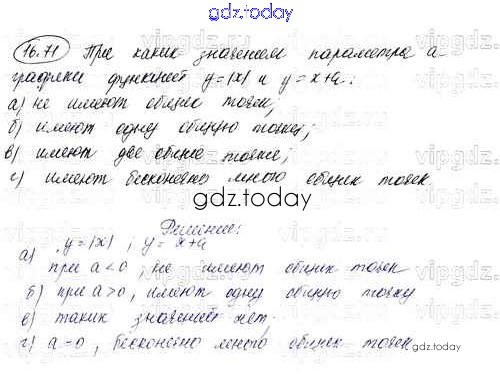 gdz.today
16.71 При каких значениях параметра а
графики функций y=|x| и y=x+a:
а) не имеют общих точек;
б) имеют одну общую точку;
в) имеют две общие точки;
г) имеют бесконечно много общих точек.
gdz.today
Решение:
а) y=|x| ; y=x+a
при a<0, не имеют общих точек
б) при a>0, имеют одну общую точку
в) таких значений нет.
г) a=0, бесконечно много общих точек.
gdz.today